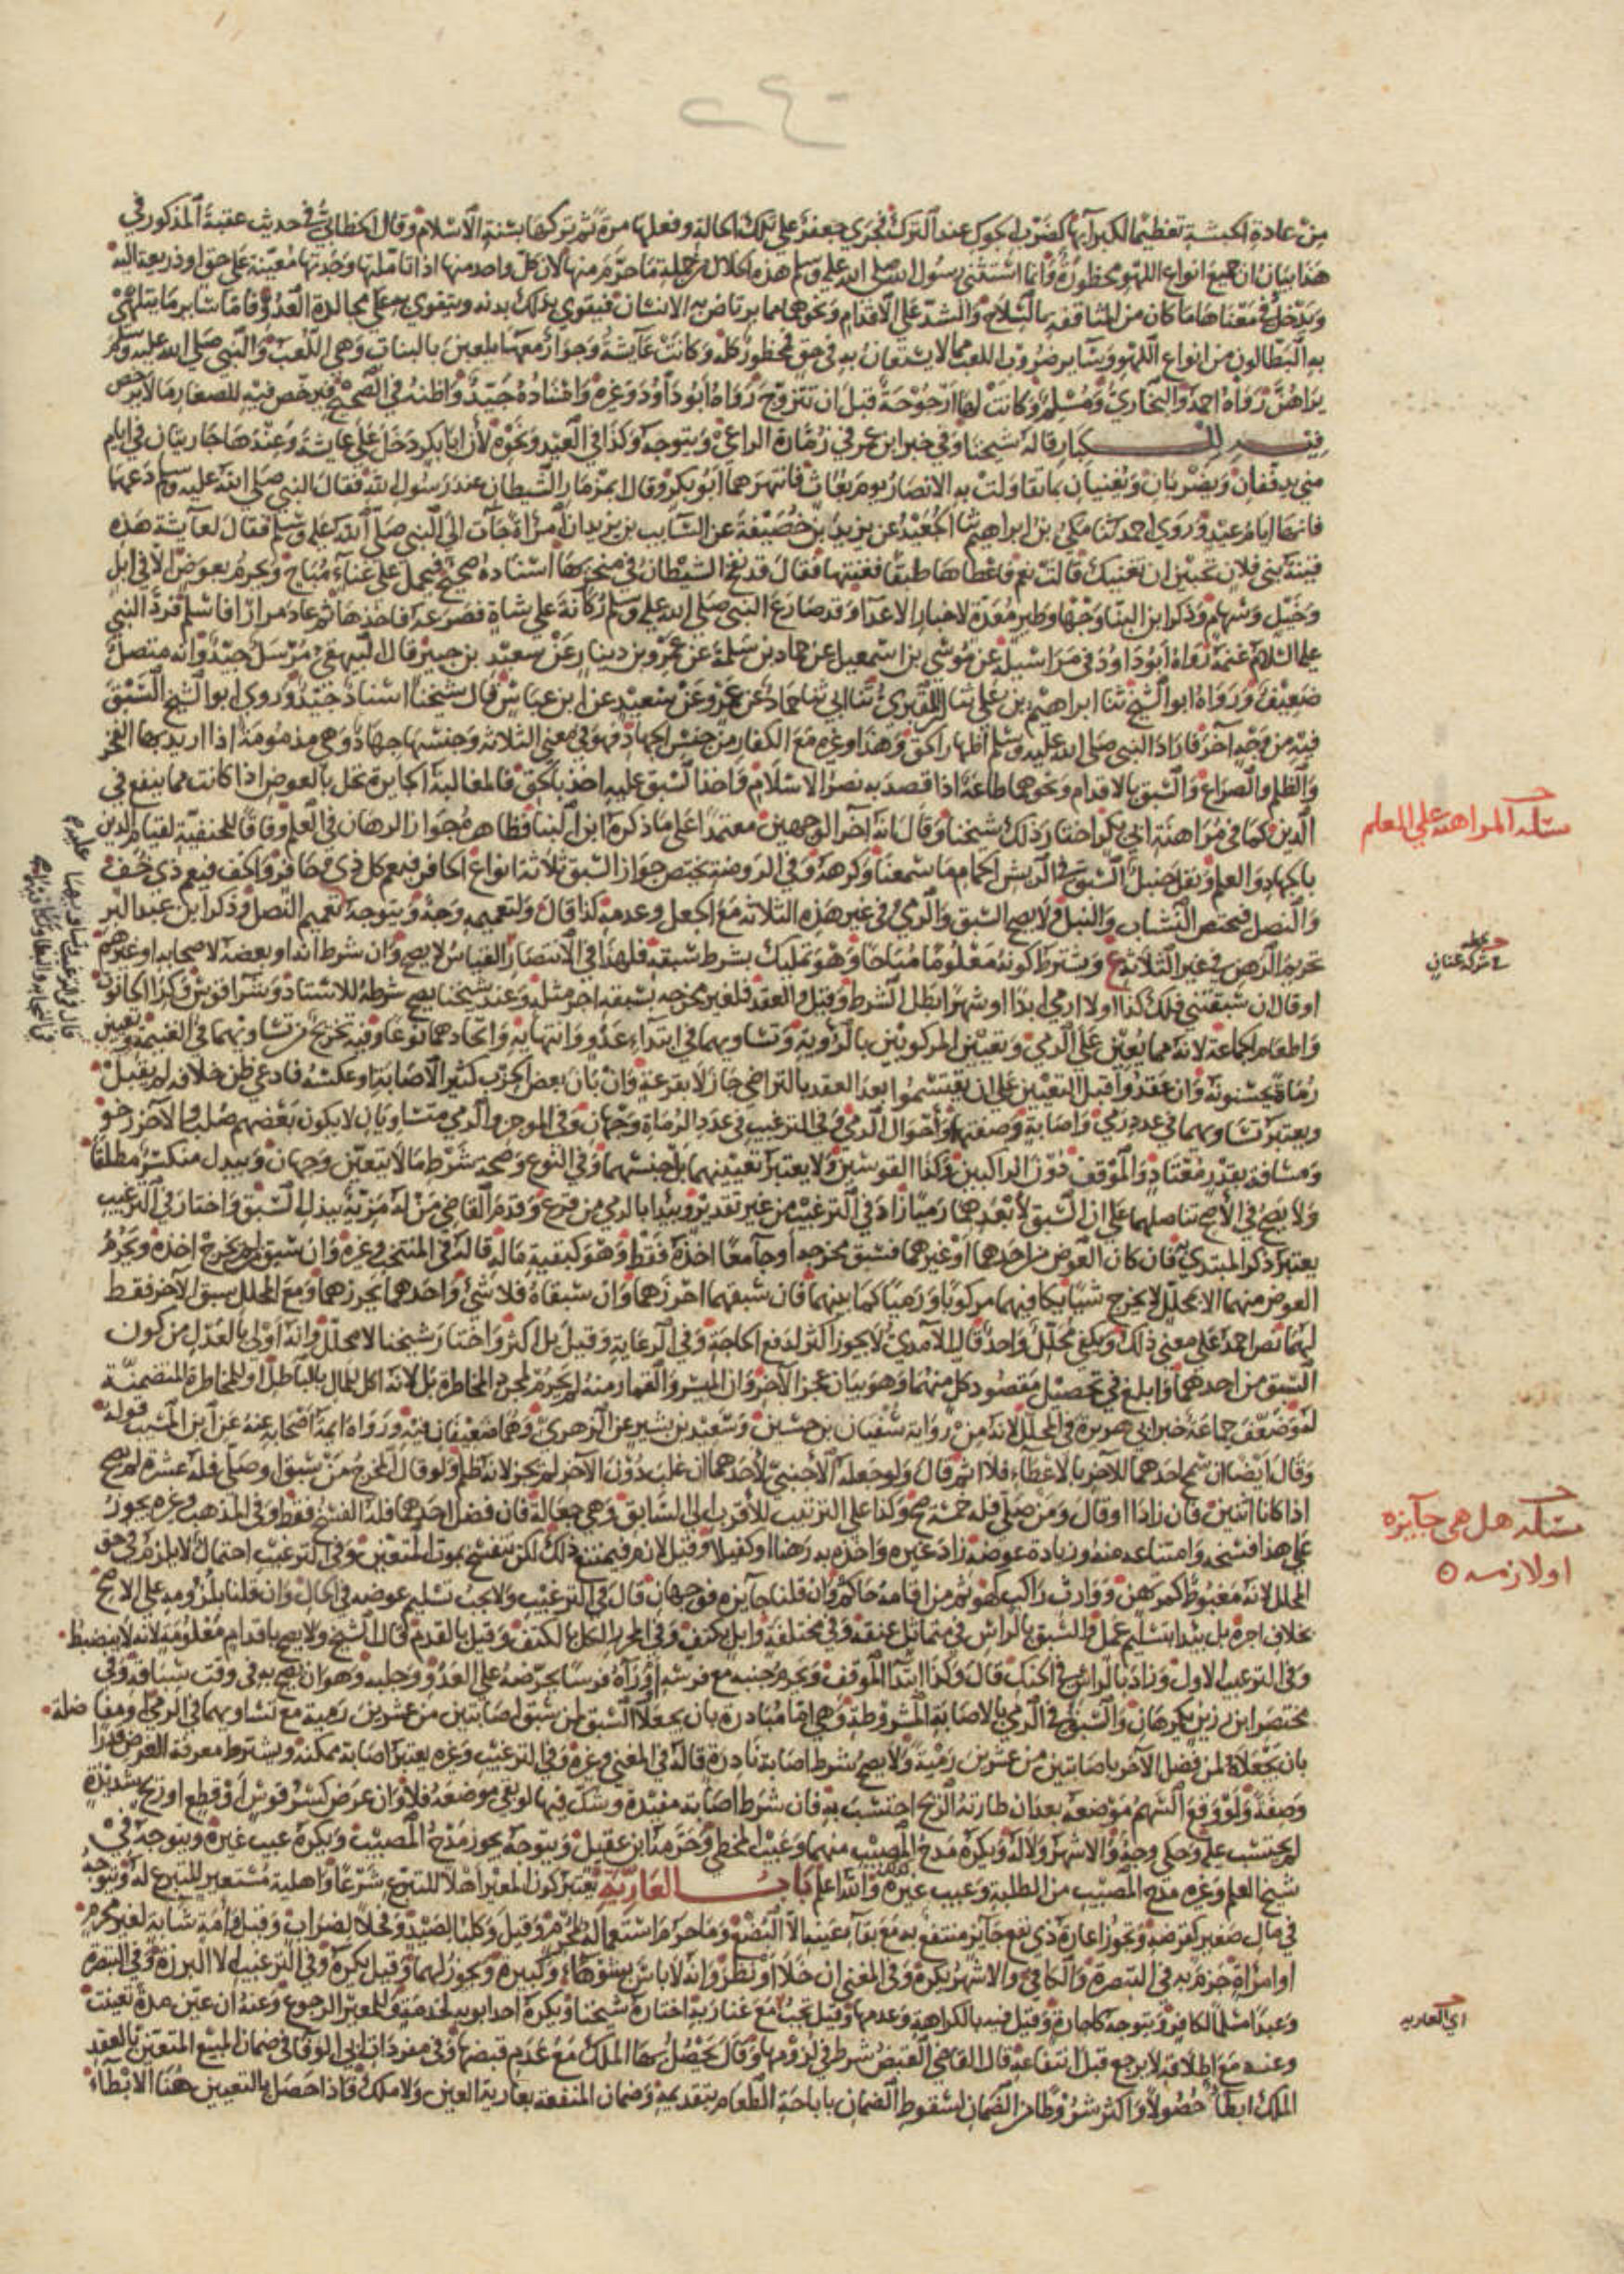 ٢٤٠
من عادة الحبشة تعظيما لكبرائها كضرب الجوك عند الترك فجرى جعفر على تلك الحالة وفعلها مرة ثم تركها بسنة الاسلام وقال الخطابي في حديث عقبة المذكور في
هذا بيان ان جميع انواع اللهو محظورة وانما استثنى رسول الله صلى الله عليه وسلم هذه الخلال من جملة ما حرم منها لان كل واحد منها اذا تأملتها وجدتها معينة على حق او ذريعة اليه
ويدخل في معناها ما كان من المثاقفة بالسلاح والشد على الاقدام ونحوهما مما يرتاض به الانسان فيقوى بذلك بدنه ويتقوى به على مجالدة العدو فاما سائر ما يتلهى
به البطالون من انواع اللهو وسائر ضروب اللعب مما لا يستعان به في حق فمحظور كله وكانت عائشة وجوار معها يلعبن بالبنات وهي اللعب والنبي صلى الله عليه وسلم
يراهن رواه احمد والبخاري ومسلم وكانت لها ارجوحة قبل ان تتزوج رواه ابو داود وغيره واسناده جيد واظنه في الصحيح فيرخص فيه للصغار ما لا يرخص
فيه للكبار قاله شيخنا وفي خبر ابن عمر في زمارة الراعي ويتوجه وكذا في العيد ونحوه لان ابا بكر دخل على عائشة وعندها جاريتان في ايام
منى يدففان ويضربان ويغنيان بما تقاولت به الانصار يوم بعاث فانتهرهما ابو بكر وقال امزمار الشيطان عند رسول الله فقال النبي صلى الله عليه وسلم دعهما
فانها ايام عيد وروى احمد ثنا مكي بن ابراهيم ثنا الجعيد عن يزيد بن خصيفة عن السايب بن يزيد ان امرأة جات الى النبي صلى الله عليه وسلم فقال لعائشة هذه
قينة بني فلان تحبين ان تغنيك قالت نعم فاعطاها طبقا فغنتها فقال قد نفخ الشيطان في منخريها اسناده صحيح فيحمل على غناء مباح ويحرم بعوض الا في ابل
وخيل وسهام وذكر ابن البنا وجها وطير معدة لاخبار الاعدا وقد صارع النبي صلى الله عليه وسلم ركانة على شاة فصرعه فاخذها ثم عاد مرارا فاسلم فرد النبي
عليه السلام غنمه رواه ابو داود في مراسيله عن موسى بن اسمعيل عن حماد بن سلمة عن عمرو بن دينار عن سعيد بن جبير قال البيهقي مرسل جيد وانه متصل
ضعيف ورواه ابو الشيخ ثنا ابراهيم بن علي ثنا المقبري ثنا ابي ثنا حماد عن عمرو عن سعيد عن ابن عباس قال شيخنا اسناد جيد وروى ابو الشيخ السبق
فيه من وجه آخر فاراد النبي صلى الله عليه وسلم اظهار الحق وهذا وغيره مع الكفار من جنس الجهاد فهو في معنى الثلاثة وجنسها جهاد وهي مذمومة اذا اريد بها الفخر
والظلم والصراع والسبق بالاقدام ونحوهما طاعة اذا قصد به نصر الاسلام واخذ السبق عليه اخذ بالحق فالمغالبة الجايزة تحل بالعوض اذا كانت مما ينفع في
الدين كما في مراهنة ابي بكر اختار ذلك شيخنا وقال انه احد الوجهين معتمدا على ما ذكره ابن البنا فظاهره جواز الرهان في العلم وفاقا للحنفية لقيام الدين
بالجهاد والعلم ونقل حنبل السبق في الريش الحمام ما سمعنا وكرهه وفي الروضة يختص جواز السبق ثلاثة انواع الحافر فيعم كل ذي حافر والخف فيعم ذي خف
والنصل فيختص النشاب والنبل ولا يصح السبق والرمي في غير هذه الثلاثة مع الجعل وعدمه كذا قال ولتعميمه وجه ويتوجه تعميم النصل وذكر ابن عبد البر
تحريم الرهن في غير الثلاثة ع ويشترط كونه معلوما مباحا وهو تمليك بشرط سبقه فلهذا في الانتصار القياس لا يصح وان شرط انه او بعضه لاصحابه او غيرهم
او قال ان سبقتني فلك كذا او لا ارمي ابدا او شهرا بطل الشرط وقيل والعقد فلغير مخرجه بسبقه اجر مثله وعند شيخنا يصح شرطه للاستاذ وشرا قوس وكرا الحانوت
واطعام الجماعة لانه مما يعين على الرمي وتعيين المركوبين بالرؤية وتساويهما في ابتداء عدو وانتهايه واتحادهما نوعا وفيه تخريج من تساويهما في الغنيمة وتعيين
رماة يحسنونه وان عقدوا قبل التعيين على ان يقتسموا بعد العقد بالتراضي جاز لا بقرعة وان بان بعض الحزب كثير الاصابة او عكسه فادعى ظن خلافه لم يقبل
ويعتبر تساويهما في عدد رمي واصابة وصفتها واحوال الرمي وفي الترغيب في عدد الرماة وجهان وفي الموجز والرمي متساويان لا يكون بعضهم صلبا والآخر رخو
ومسافة بقدر معتاد والموقف دون الراكبين وكذا القوسين ولا يعتبر تعيينهما بل جنسهما وفي النوع وصحة شرط ما لا يتعين وجهان ويبدل منكسر مطلقا
ولا يصح في الاصح تناصلهما على ان السبق لابعدهما رميا زاد في الترغيب من غير تقدير ويبدا بالرمي من قرع وقدم القاضي من له مزية ببذل السبق واختار في الترغيب
يعتبر ذكر المبتدي به فان كان العوض من احدهما او غيرهما فسبق مخرجه او جآ معا اخذه فقط وهو كبقية ماله قاله في المنتخب وغيره وان سبق من لم يخرج اخذه ويحرم
العوض منهما الا بمحلل لا يخرج شيا يكافيهما مركوبا ورميا كما بينهما فان سبقهما احرزهما وان سبقاه فلا شي واحدهما يحرزهما ومع المحلل سبق الآخر فقط
لهما نص احمد على معنى ذلك ويكفي محلل واحد قال الآمدي لا يجوز اكثر لدفع الحاجة وفي الرعاية وقيل بل اكثر واختار شيخنا لا محلل وانه اولى بالعدل من كون
السبق من احدهما وابلغ في تحصيل مقصود كل منهما وهو بيان عجز الآخر وان الميسر والقمار منه لم يحرم لمجرد المخاطرة بل لانه اكل للمال بالباطل او للمخاطرة المتضمنة
له وضعف جماعة خبر ابي هريرة في المحلل لانه من رواية سفيان بن حسين وسعيد بن بشير عن الزهري وهما ضعيفان فيه ورواه ايمة اصحابه عنه عن ابن المسيب قوله
وقال ايضا ان سمح احدهما للآخر بالاعطاء فلا اثم قال ولو جعله الاجنبي لاحدهما ان غلب دون الآخر لم يجز لانه ظلم ولو قال المخرج من سبق او صلى فله عشرة لم يصح
اذا كانا اثنين فان زادا او قال ومن صلى فله خمسة صح وكذا على الترتيب للاقرب الى السابق وهي جعالة فان فضل احدهما فله الفسخ فقط وفي المذهب وغيره يجوز
على هذا فسخه وامتناعه منه وزيادة عوضه زاد غيره واخذه به رهنا او كفيلا وقيل لازم فيمتنع ذلك لكن تنفسخ بموت المتعين وفي الترغيب احتمال لا يلزم في حق
المحلل لانه مغبوط كمرتهن ووارث راكب كهو ثم من اقامه حاكم وان قلنا جايزه فوجهان قال في الترغيب ولا يجب تسليم عوضه في الحال وان قلنا بلزومه على الاصح
بخلاف اجرة بل يبدا بتسليم عمل والسبق بالراس في متماثل عنقه وفي مختلفه وابل بكتف وفي المحرر الكل بالكتف وقيل بالقدم قال الشيخ ولا يصح باقدام معلومة لانه لا ينضبط
وفي الترغيب الاول وزاد بالراس في الخيل قال وكذا ابتدا الموقف ويحرم جنبه مع فرسه او وراه فرسا يحرضه على العدو وجلبه وهو ان يصح به في وقت سباقه وفي
مختصر ابن رزين يكرهان والسبق في الرمي بالاصابة المشروطة وهي اما مبادرة بان يجعلا السبق لمن سبق لاصابتين من عشرين رمية مع تساويهما في الرمي او مفاضلة
بان يجعلاه لمن فضل الآخر باصابتين من عشرين رمية ولا يصح شرط اصابة نادرة قاله في المغني وغيره وفي الترغيب وغيره يعتبر اصابة ممكنة ويشترط معرفة الغرض قدرا
وصفة ولو وقع السهم موضعه بعد ان طارته الريح احتسب به فان شرط اصابة مقيدة وشك فيها لو بقي موضعه فلا وان عرض كسر قوس او قطع او ريح شديدة
لم يحتسب عليه وحكى وجه والاشهر ولا له ويكره مدح المصيب منهما وعيب المخطي وحرمه ابن عقيل ويتوجه يجوز مدح المصيب ويكره عيب غيره ويتوجه في
شيخ العلم وغيره مدح المصيب من الطلبة وعيب غيره والله اعلم باب العارية يعتبر كون المعير اهلا للتبرع شرعا واهلية مستعير للتبرع له ويتوجه
في مال صغير كقرضه وتجوز اعارة ذي نفع جايز منتفع به مع بقآ عينه الا البضع وما حرم استعماله لمحرم وقيل وكلبا لصيد وفحلا لضراب وقيل وامة شابة لغير محرم
او امراة جزم به في التبصرة والكافي والاشهر يكره وفي المغني ان خلا او نظر وانه لا باس بشوهاء وكبيرة ويجوز لهما وقيل يكره وفي الترغيب الا البرزة وفي التبصرة
وعبدا مسلما لكافر ويتوجه كاجارة وقيل فيه بالكراهة وعدمها وقيل تجب مع غنا ربه اختاره شيخنا ويكره احد ابويه لخدمته وللمعير الرجوع وعنه ان عين مدة تعينت
وعنه مع اطلاقه لا يرجع قبل انتفاعه قال القاضي القبض شرط في لزومها وقال يحصل بها الملك مع عدم قبضها وفي مفردات ابي الوفا في ضمان المبيع المتعين بالعقد
الملك ابطأ حصولا واكثر شروطا من الضمان لسقوط الضمان باباحة الطعام بتقديمه وضمان المنفعة بعارية العين ولا ملك فاذا حصل بالتعيين هنا الابطاء
مسئلة المراهنة على العلم
في شركة عنان
مسئلة هل هي جآيزه
او لازمه
اي العاريه